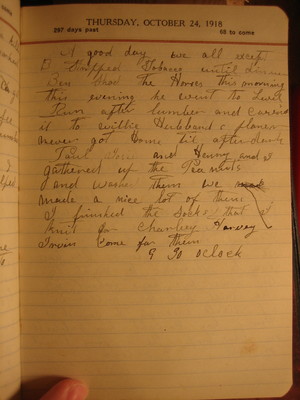 THURSDAY, OCTOBER 24, 1918
297 days past 68 to come
A good day we all except
B Stripped Tobacco until dinner
Ben Shod the Horses this morning
this evening he went to
Run after lumber and carried
it to Willie Hubbard's planer
never got home til after dark
Paul and Henry and I
gathered up the Peanuts
and washed them we
made a nice lot of them
I finished the socks that I
Knit for Charley Harvey
Irvin come for them
9 30 oclock